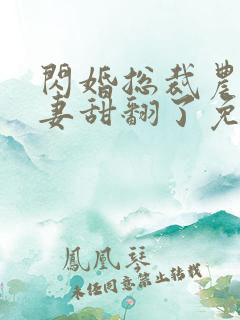 閃婚总裁農
妻甜翻了免
鳳凰琴
未经同意禁止转载